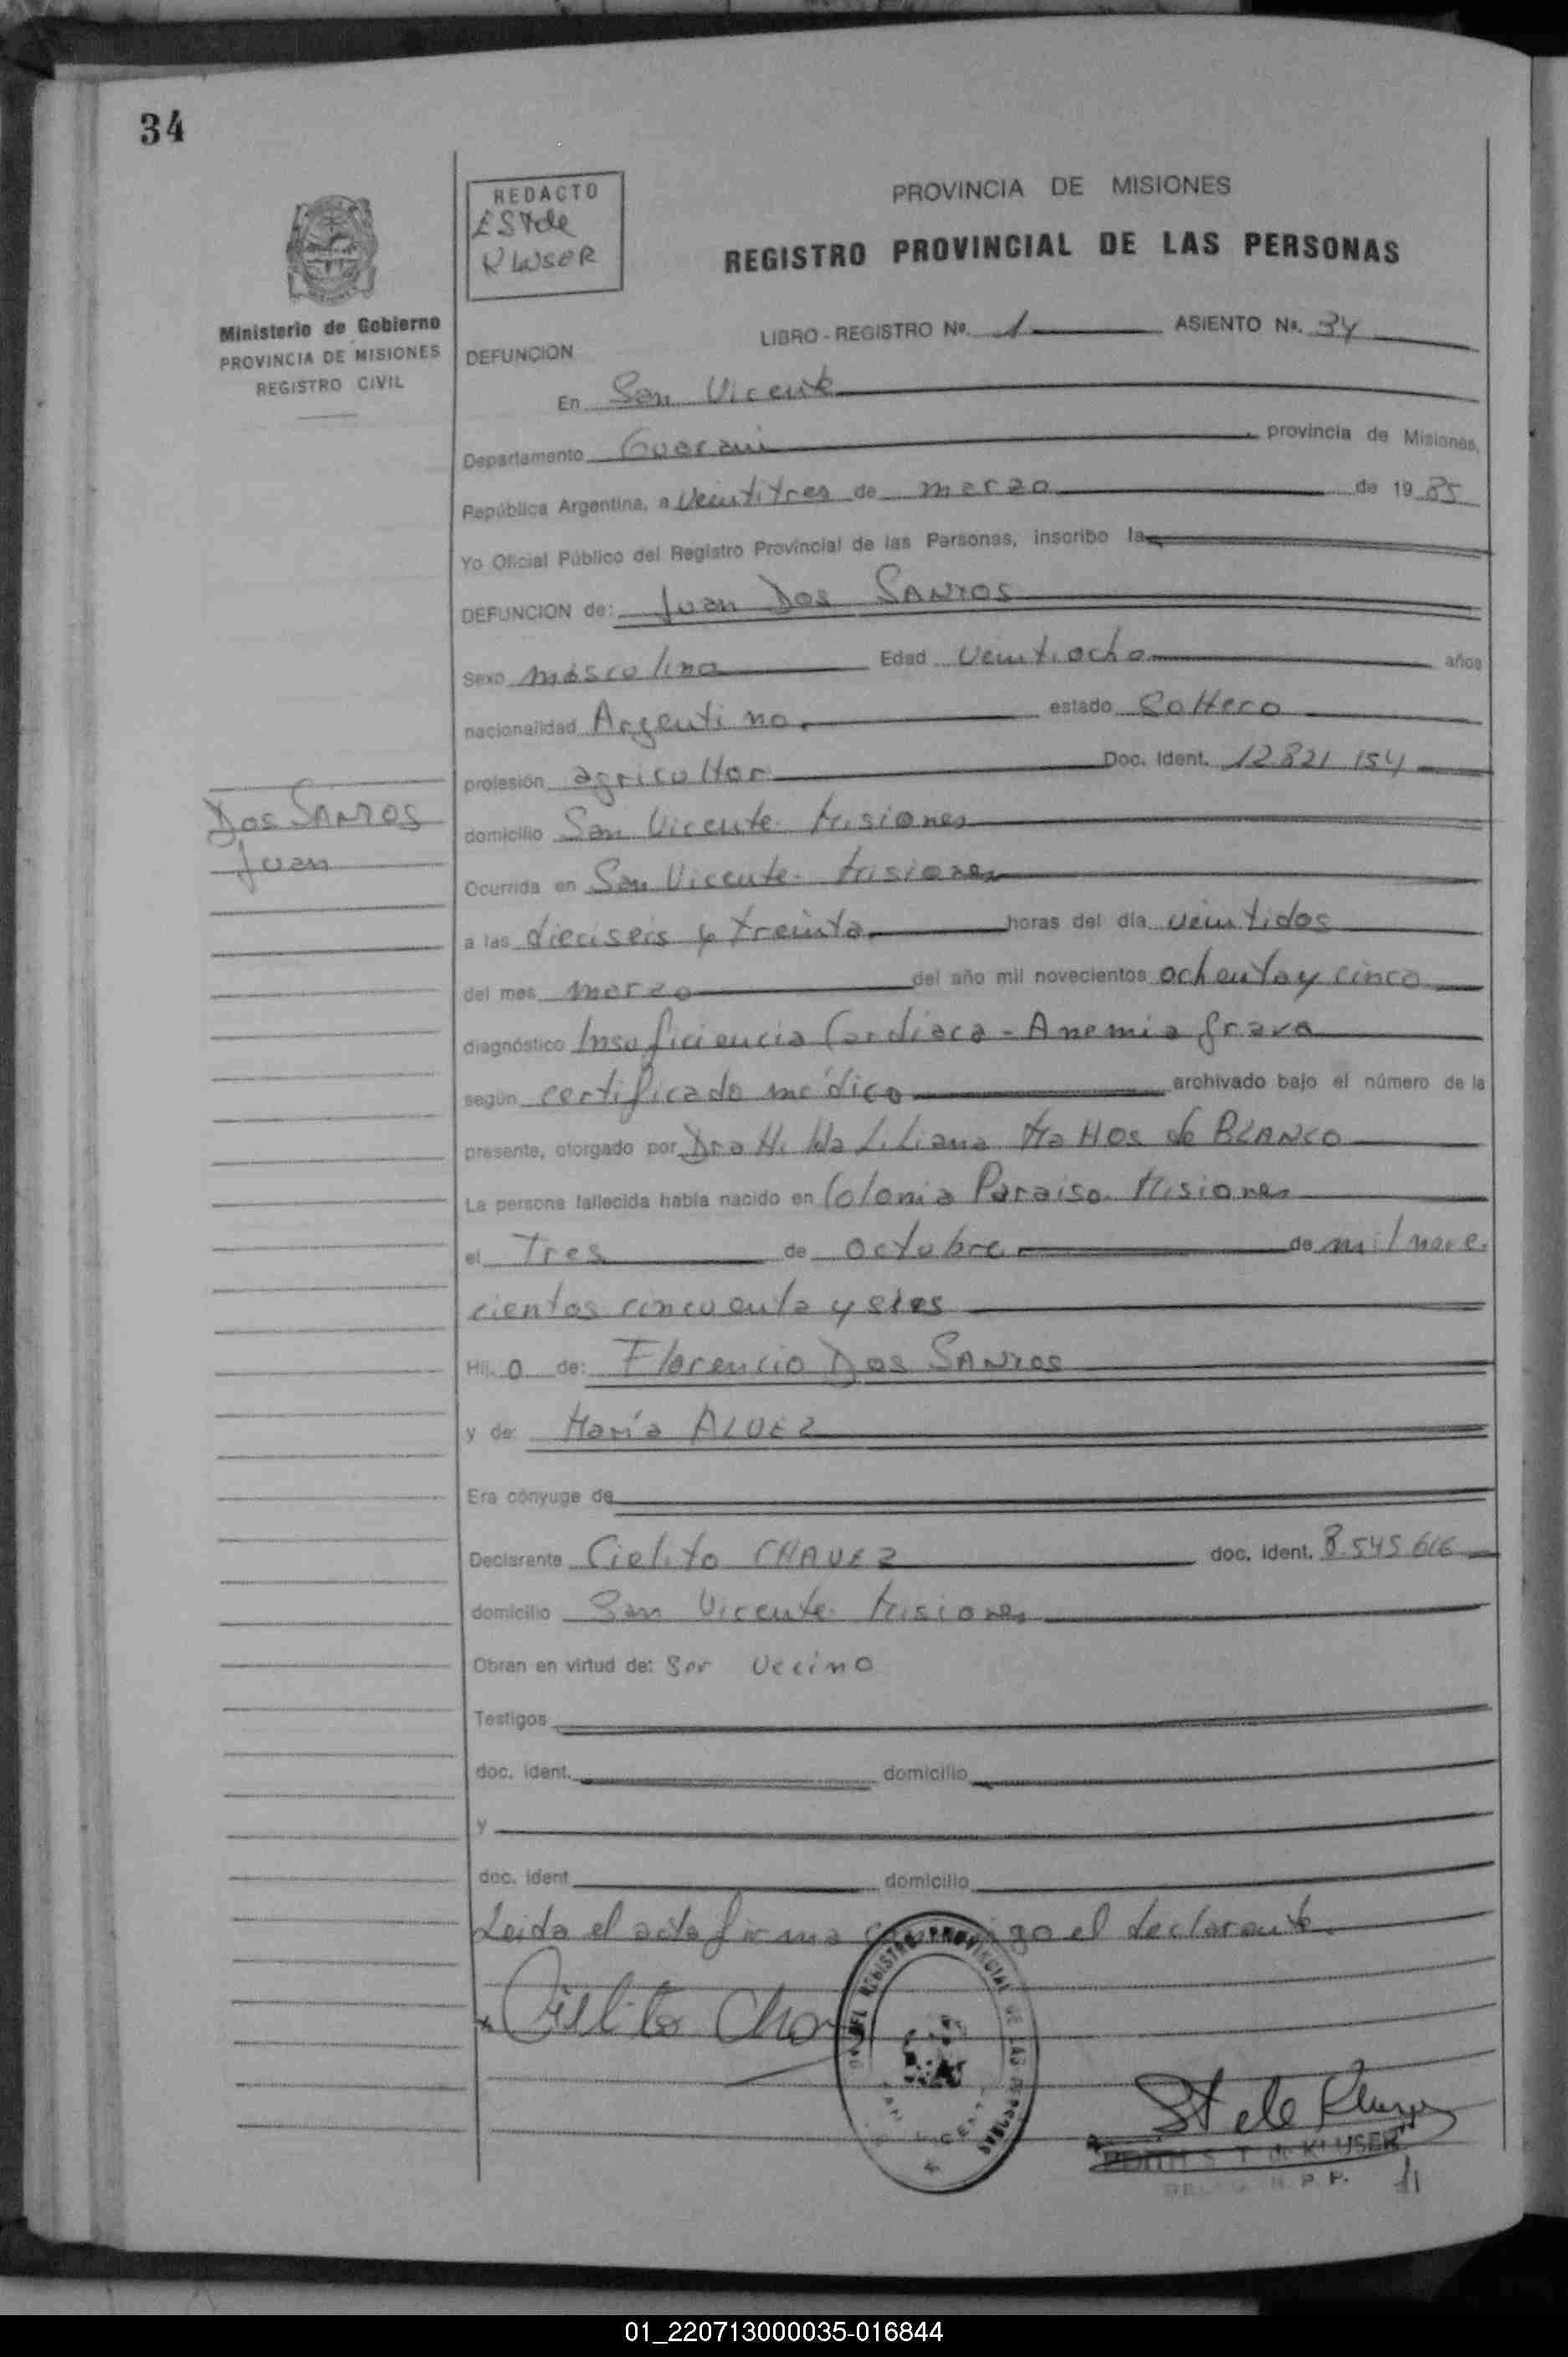 34
REDACTO
ESTde
KLUSER
PROVINCIA DE MISIONES
REGISTRO PROVINCIAL DE LAS PERSONAS
Ministerio de Gobierno
PROVINCIA DE MISIONES
REGISTRO CIVIL
LIBRO - REGISTRO Nº. 1 ASIENTO Nº. 34
DEFUNCION
En San Vicente
Departamento Guarani, provincia de Misiones,
República Argentina, a veintitres de marzo de 19 85
Yo Oficial Público del Registro Provincial de las Personas, inscribo la
DEFUNCION de: Juan Dos SANTOS
Sexo masculino Edad veintiocho años
nacionalidad Argentino. estado Soltero
profesión agricultor Doc. Ident. 12.821.154
Dos SANTOS
Juan
domicilio San Vicente. Misiones
Ocurrida en San Vicente. Misiones
a las dieciseis y treinta horas del día veintidos
del mes marzo del año mil novecientos ochenta y cinco
diagnóstico Insuficiencia Cardiaca - Anemia grave
según certificado médico archivado bajo el número de la
presente, otorgado por Dra Hilda Liliana Mattos de BLANCO
La persona fallecida había nacido en Colonia Paraiso. Misiones
el Tres de octubre de mil nove.
cientos cincuenta y
Hij o de: Florencio Dos SANTOS
y de: María ALVEZ
Era cónyuge de
Declarante Cielito CHAVEZ doc. ident. 8.545.616
domicilio San Vicente. Misiones
Obran en virtud de: Ser Vecino
Testigos
doc. ident. domicilio
y
doc. ident domicilio
Leida el acta firma conmigo el declarante.
Cielito
REGISTRO PROVINCIAL DE LAS PERSONAS
SAN VICENTE
ST de Kluser
EDITH S. T. de KLUSER
R. P. P.
01_220713000035-016844